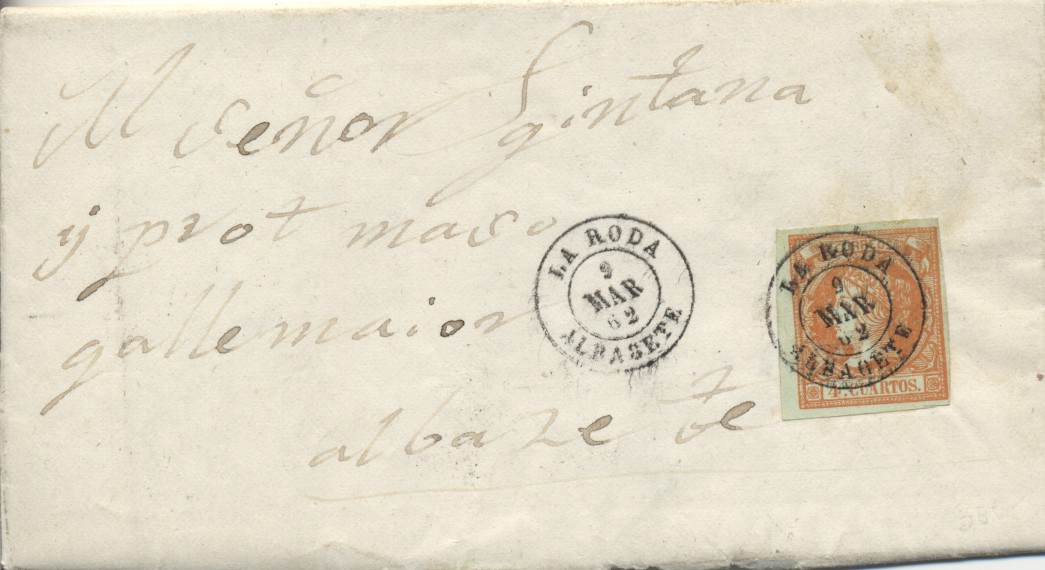 Al señor Qintana
y prot maso
gallemaior
albazete
LA RODA
9
MAR
62
ALBACETE
LA RODA
9
MAR
62
ALBACETE
4 CUARTOS.